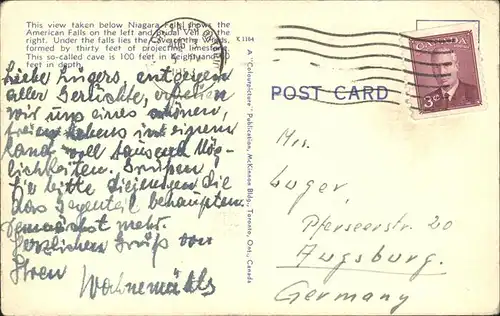 This view taken below Niagara Falls shows the
American Falls on the left and Bridal Veil on the
right. Under the falls lies the Cave of the Winds,
formed by thirty feet of projecting limestone.
This so-called cave is 100 feet in height and
feet in depth.
K 1164
Liebe Lugers, entgegen
aller Gerüchte, erfreuen
wir uns eines schönen,
freien Lebens in einem
Land voll tausend Mög-
lichkeiten. Grüßen
Sie bitte diejenigen die
das Gegenteil behaupten
demnächst mehr.
Herzlichen Gruß von
Ihren
A "Colourpicture" Publication, McKinnon Bldg., Toronto, Ont., Canada
POST CARD
CANADA
3¢
Mrs.
Luger,
Pferseerstr. 20
Augsburg.
Germany